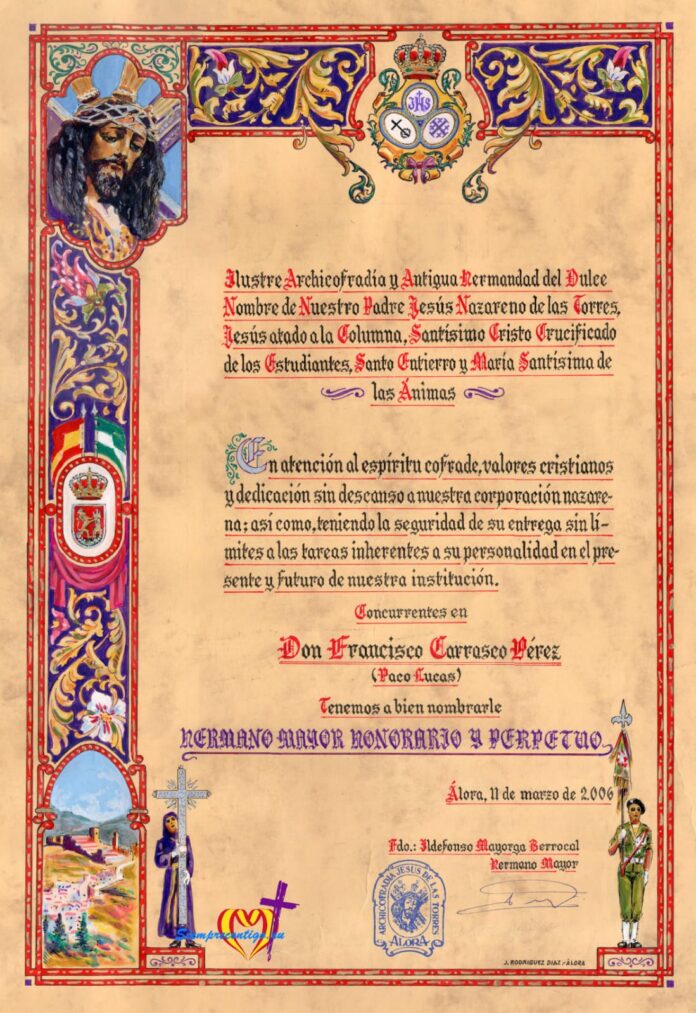 JHS
Ilustre Archicofradía y Antigua Hermandad del Dulce
Nombre de Nuestro Padre Jesús Nazareno de las Torres,
Jesús atado a la Columna, Santísimo Cristo Crucificado
de los Estudiantes, Santo Entierro y María Santísima de
las Ánimas
En atención al espíritu cofrade, valores cristianos
y dedicación sin descanso a nuestra corporación nazare-
na; así como, teniendo la seguridad de su entrega sin lí-
mites a las tareas inherentes a su personalidad en el pre-
sente y futuro de nuestra institución.
Concurrentes en
Don Francisco Carrasco Pérez
(Paco Lucas)
Tenemos a bien nombrarle
HERMANO MAYOR HONORARIO Y PERPETUO
Álora, 11 de marzo de 2.006
Fdo.: Ildefonso Mayorga Berrocal
Hermano Mayor
ARCHICOFRADIA JESUS DE LAS TORRES
ALORA
Siemprecontigo.eu
J. RODRIGUEZ DIAZ.-ÁLORA